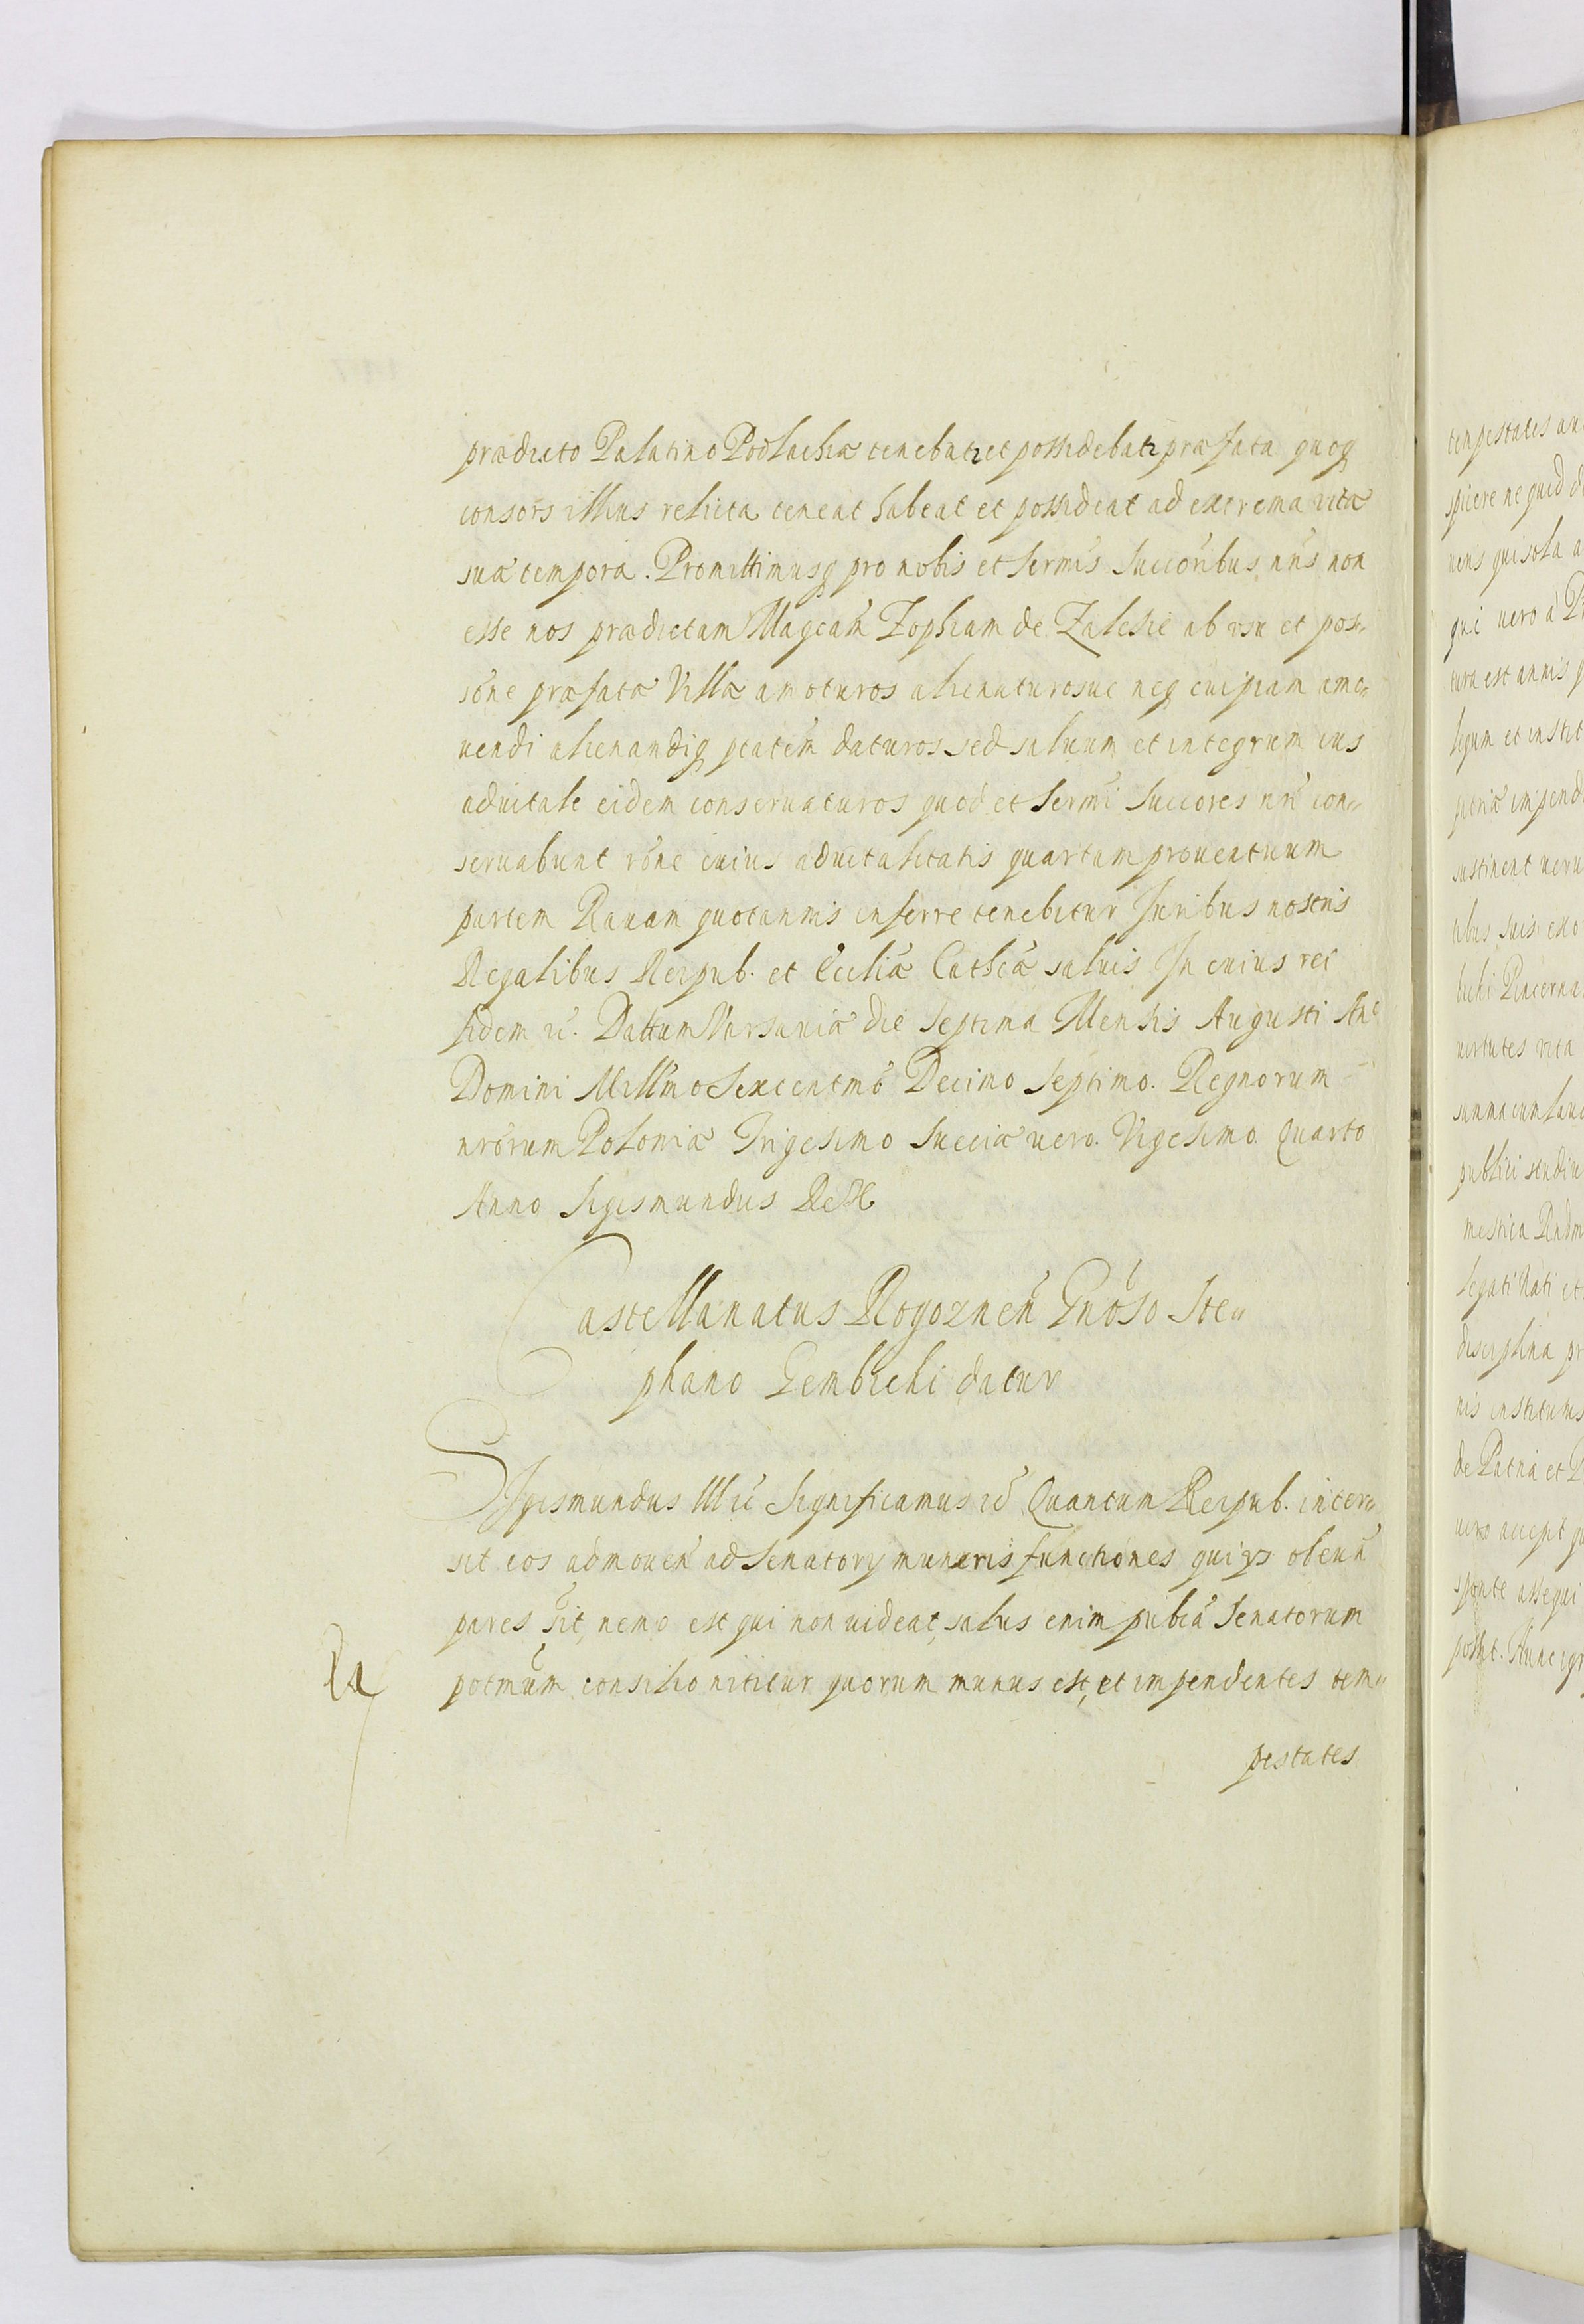 prædicto Palatino Podlachiæ tenebat, et possidebat, præfata quoq
consors illius relicta teneat habeat et possideat ad extrema vitæ
suæ tempora. Promittimusq pro nobis et Sermis Succoribus nris non
esse nos prædictam Mageam Zophiam de Zalesie ab vsu et pos=
sone præfatæ Villæ amoturos alienaturosue neq cuipiam amo=
uendi alienandiq ptatem daturos sed saluum et integrum ius
aduitale eidem conseruaturos quod et Sermi Succores nri con=
seruabunt rone cuius aduitalitatis quartam prouentuum
partem Rauam quotannis inferre tenebitur Juribus nostris
Regalibus Reipub. et Ecclia Cathca saluis In cuius rei
fidem rc. Dattum Varsauiæ die Septima Mensis Augusti Ano
Domini Millmo Sexcentmo Decimo Septimo. Regnorum
nrorum Poloniæ Trigesimo Sueciæ uero. Vigesimo Quarto
Anno Sigismundus Rex
Castellanatus Rogoznen Gnoso Ste=
phano Gembicki datur
Sigismundus IIIic Significamus rc Quantum Reipub. inter=
sit eos admouen ad Senatory muneris functiones qui ijs obeun
pares sit, nemo est qui non uideat, salus enim pubca Senatorum
potmum consilio nititur quorum munus est, et impendentes tem=
pestates
tempestates
spicere ne quid
nens qui sola a
qui uero a
tura est annis
legum et instit
patriæ impend
sustinent
tibus suis
bicki Pincerna
uirtutes vita
summa cum
publici studiu
mestica
legati Nati et
disciplina pr
nis
de Patria et
uero
sponte assequi
posset. Hunc